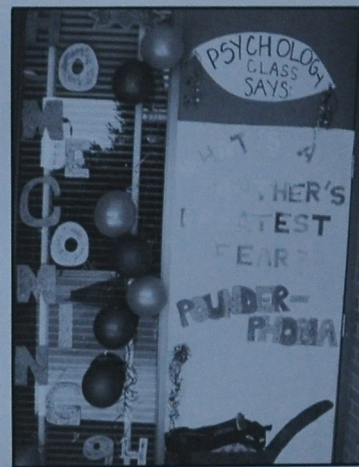 HOMECOMING '94
PSYCHOLOGY
CLASS
SAYS:
WHAT'S A
GREATEST
FEAR?
POUNDER-
PHOBIA